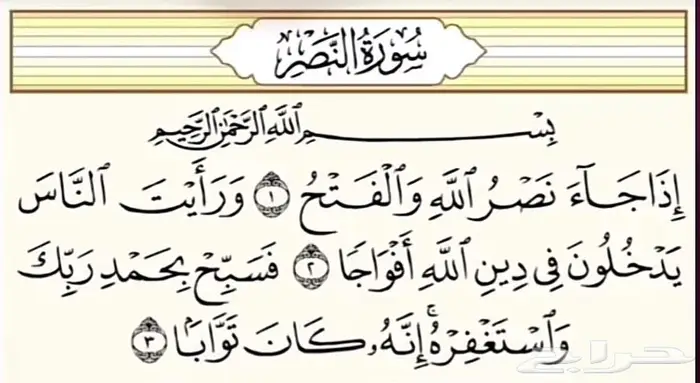 سُورَةُ النَّصْرِ
بِسْمِ اللَّهِ الرَّحْمَٰنِ الرَّحِيمِ
إِذَا جَآءَ نَصْرُ اللَّهِ وَالْفَتْحُ ١ وَرَأَيْتَ النَّاسَ
يَدْخُلُونَ فِي دِينِ اللَّهِ أَفْوَاجًا ٢ فَسَبِّحْ بِحَمْدِ رَبِّكَ
وَاسْتَغْفِرْهُ ۚ إِنَّهُ كَانَ تَوَّابًا ٣
حراج